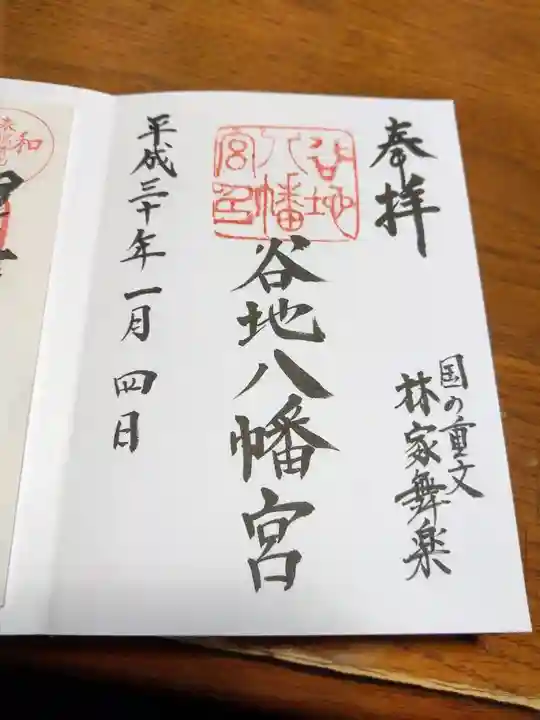 奉拝
国の重文
林家舞楽
谷地
八幡
宮
谷地八幡宮
平成三十年一月四日
和